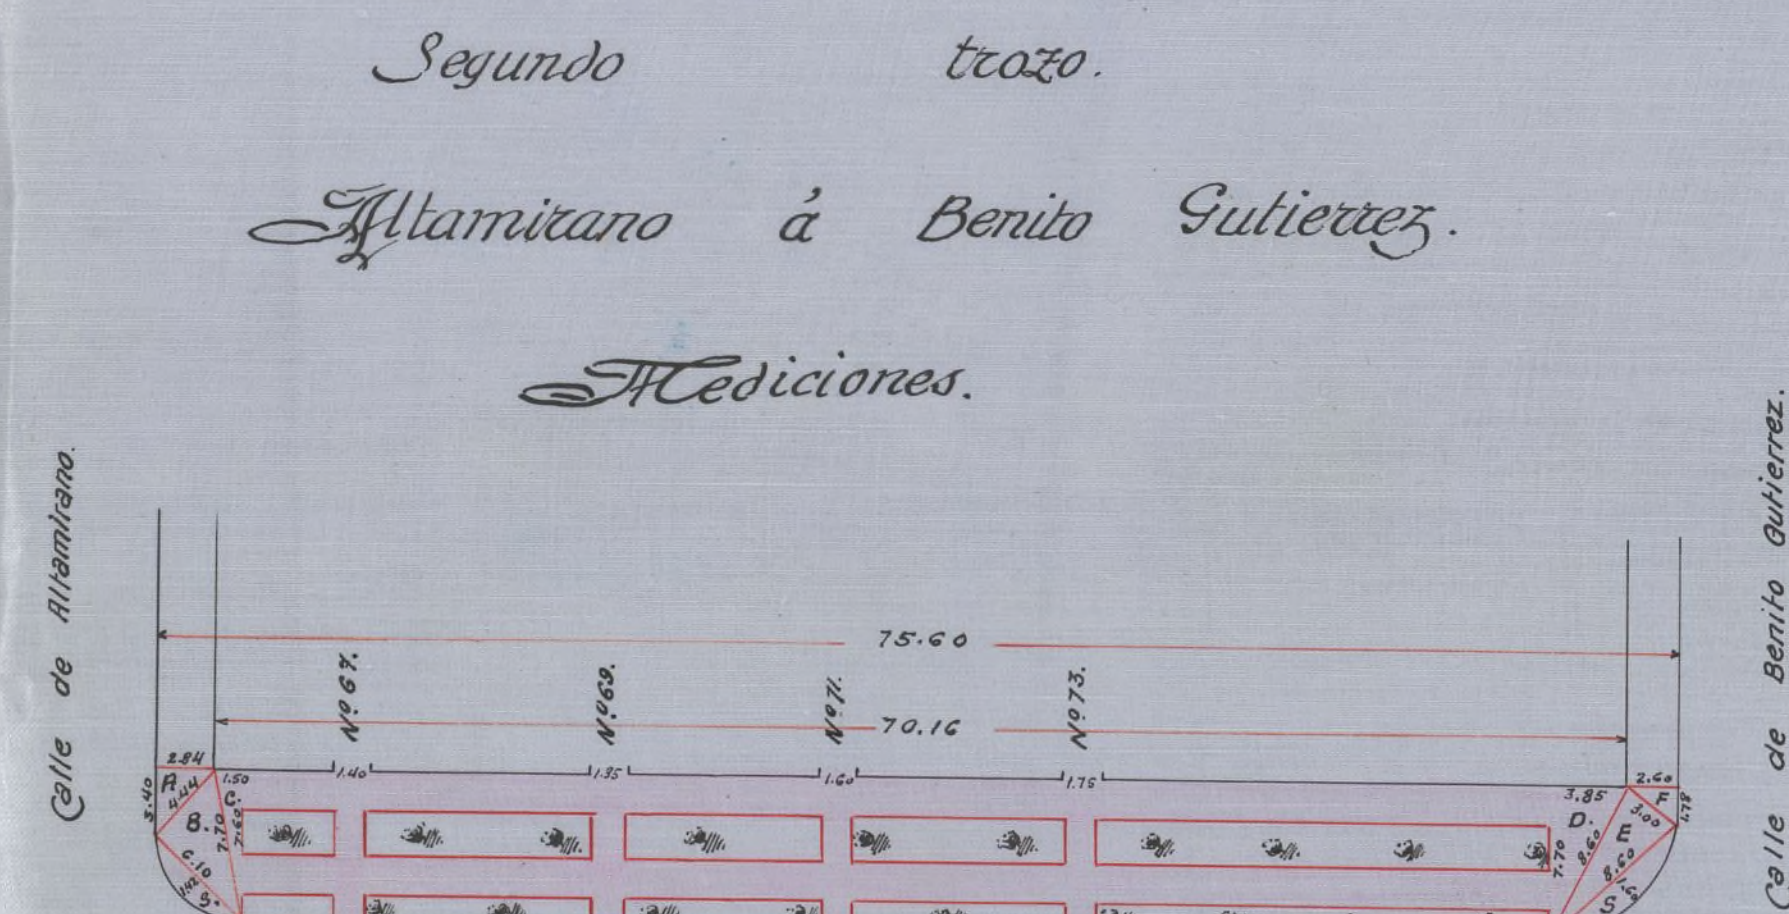 Segundo trozo.
Altamirano á Benito Gutierrez.
Mediciones.
Calle de Altamirano.
Calle de Benito Gutierrez.
75.60
Nº 67.
Nº 69.
Nº 71.
Nº 73.
70.16
2.84
1.50
1.40
1.35
1.60
1.75
3.85
2.60
A
4.44
C.
3.40
B.
7.70
7.60
D.
F
1.78
3.00
E
7.70
8.60
8.60
6.10
1.42
S.
S